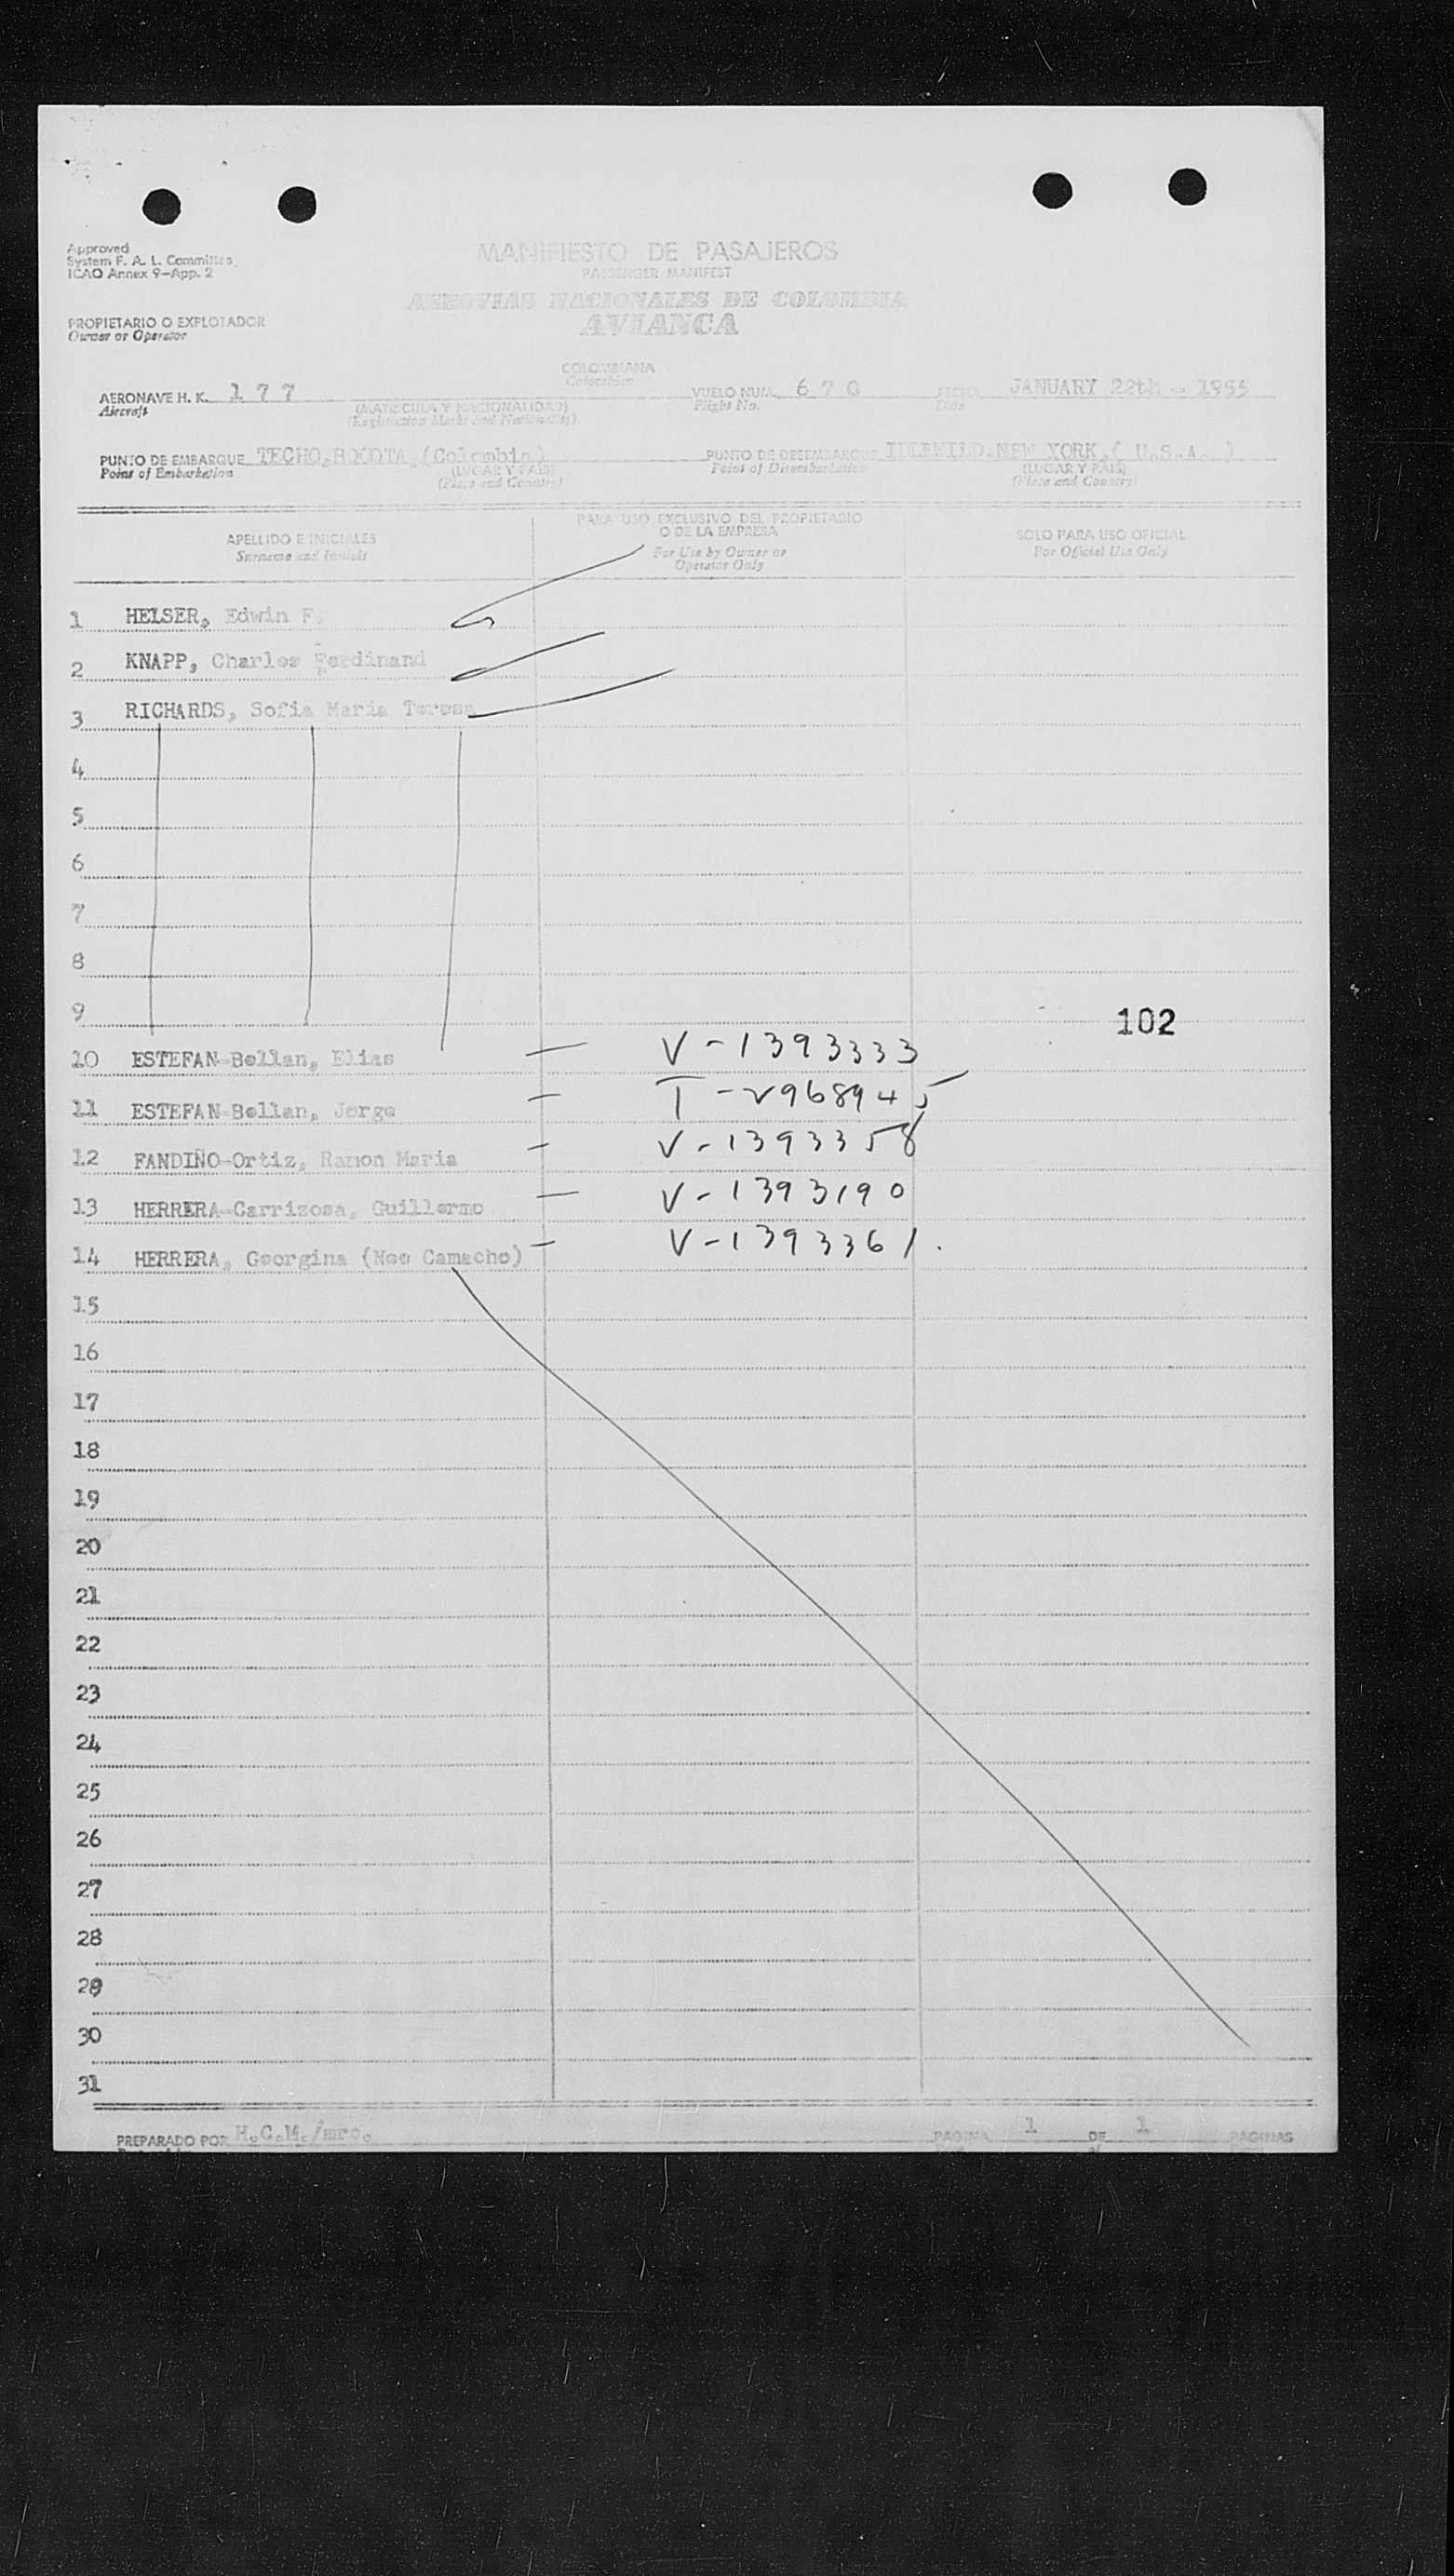 Approved
System F. A. L. Committee
ICAO Annex 9-App. 2
MANIFIESTO DE PASAJEROS
PASSENGER MANIFEST
AEROVIAS NACIONALES DE COLOMBIA
AVIANCA
PROPIETARIO O EXPLOTADOR
Owner or Operator
COLOMBIANA
Colombian
AERONAVE H. K. 177 VUELO NUM. 670 FECHA JANUARY 22th - 1955
Aircraft (MATRICULA Y NACIONALIDAD) Flight No. Date
(Registration Marks and Nationality)
PUNTO DE EMBARQUE TECHO,BOGOTA,(Colombia) PUNTO DE DESEMBARQUE IDLEWILD.NEW YORK.( U.S.A. )
Point of Embarkation (LUGAR Y PAIS) Point of Disembarkation (LUGAR Y PAIS)
(Place and Country) (Place and Country)
APELLIDO E INICIALES PARA USO EXCLUSIVO DEL PROPIETARIO O DE LA EMPRESA SOLO PARA USO OFICIAL
Surname and Initials For Use by Owner or Operator Only For Official Use Only
1 HELSER, Edwin F.
2 KNAPP, Charles Ferdinand
3 RICHARDS, Sofia Maria Teresa
4
5
6
7
8
9
102
10 ESTEFAN-Bellan, Elias — V-1393333
11 ESTEFAN-Bellan, Jorge — T-2968945
12 FANDIÑO-Ortiz, Ramon Maria — V-1393358
13 HERRERA-Carrizosa, Guillermo — V-1393190
14 HERRERA, Georgina (Nee Camacho) — V-1393361.
15
16
17
18
19
20
21
22
23
24
25
26
27
28
29
30
31
PREPARADO POR H.C.M./mrc. PAGINA 1 DE 1 PAGINAS